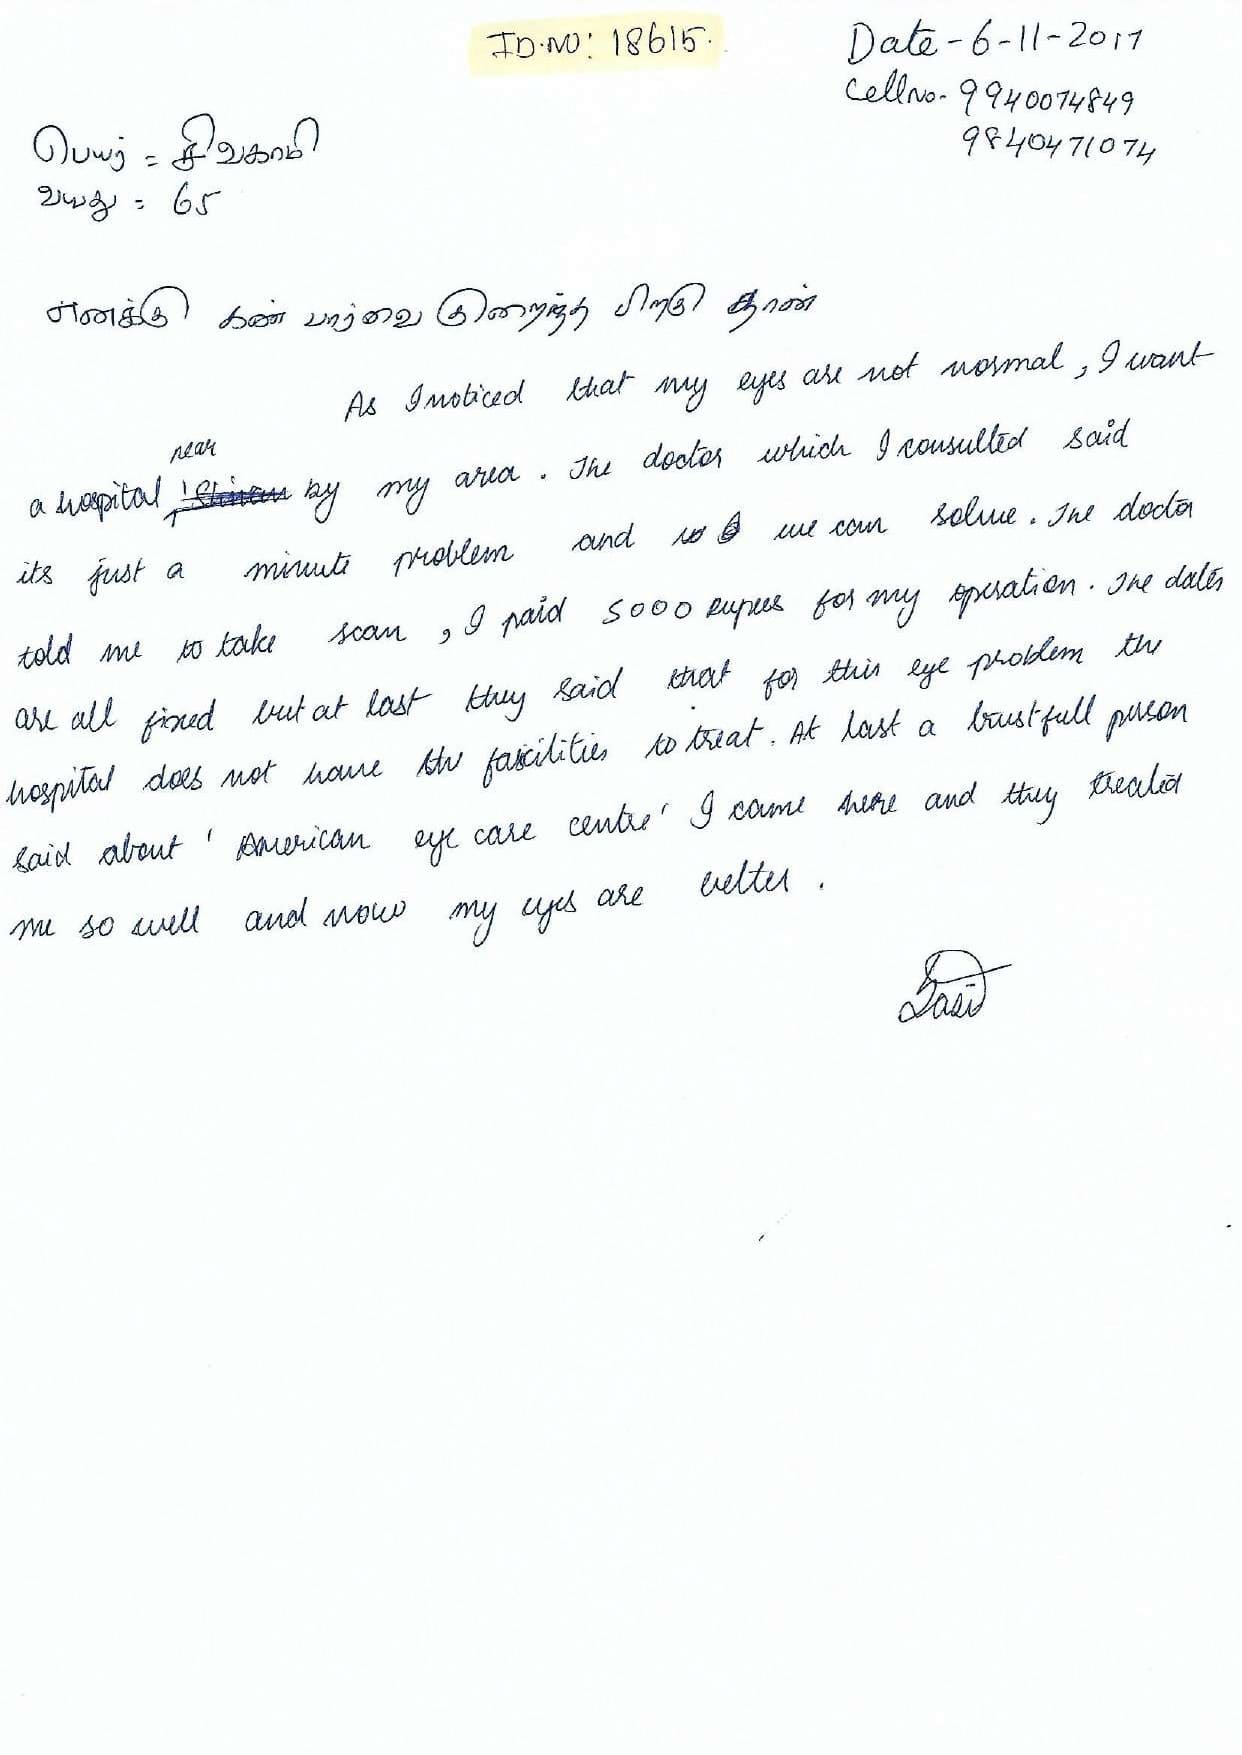 ID.NO: 18615.
Date - 6-11-2017
Cell No. - 9940074849
9840471074
பெயர் = சிவகாமி
வயது = 65
எனக்கு கண் பார்வை குறைந்த பிறகு தான்
As I noticed that my eyes are not normal, I want
near
a hospital by my area. The doctor which I consulted said
its just a minute problem and we can solve. The doctor
told me to take scan, I paid 5000 rupees for my operation. The dates
are all fixed but at last they said that for this eye problem the
hospital does not have the facilities to treat. At last a trustfull person
said about 'American eye care centre' I came here and they treated
me so well and now my eyes are better.